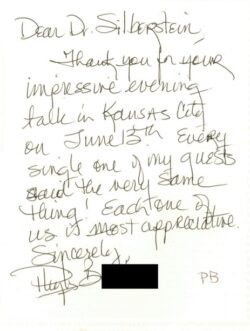 Dear Dr. Silberstein,
Thank you for your
impressive evening
talk in Kansas City
on June 13th. Every
single one of my guests
said the very same
thing! Each one of
us is most appreciative.
Sincerely,
PB